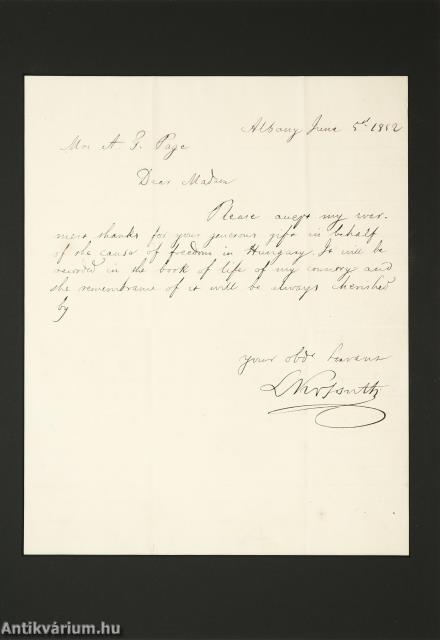 Albany June 5d 1852
Mrs A. G. Page
Dear Madam
Please accept my war-
mest thanks for your generous gift in behalf
of the cause of freedom in Hungary. It will be
recorded in the book of life of my country and
the remembrance of it will be always cherished
by
your obdt Servant
L Kossuth
Antikvárium.hu